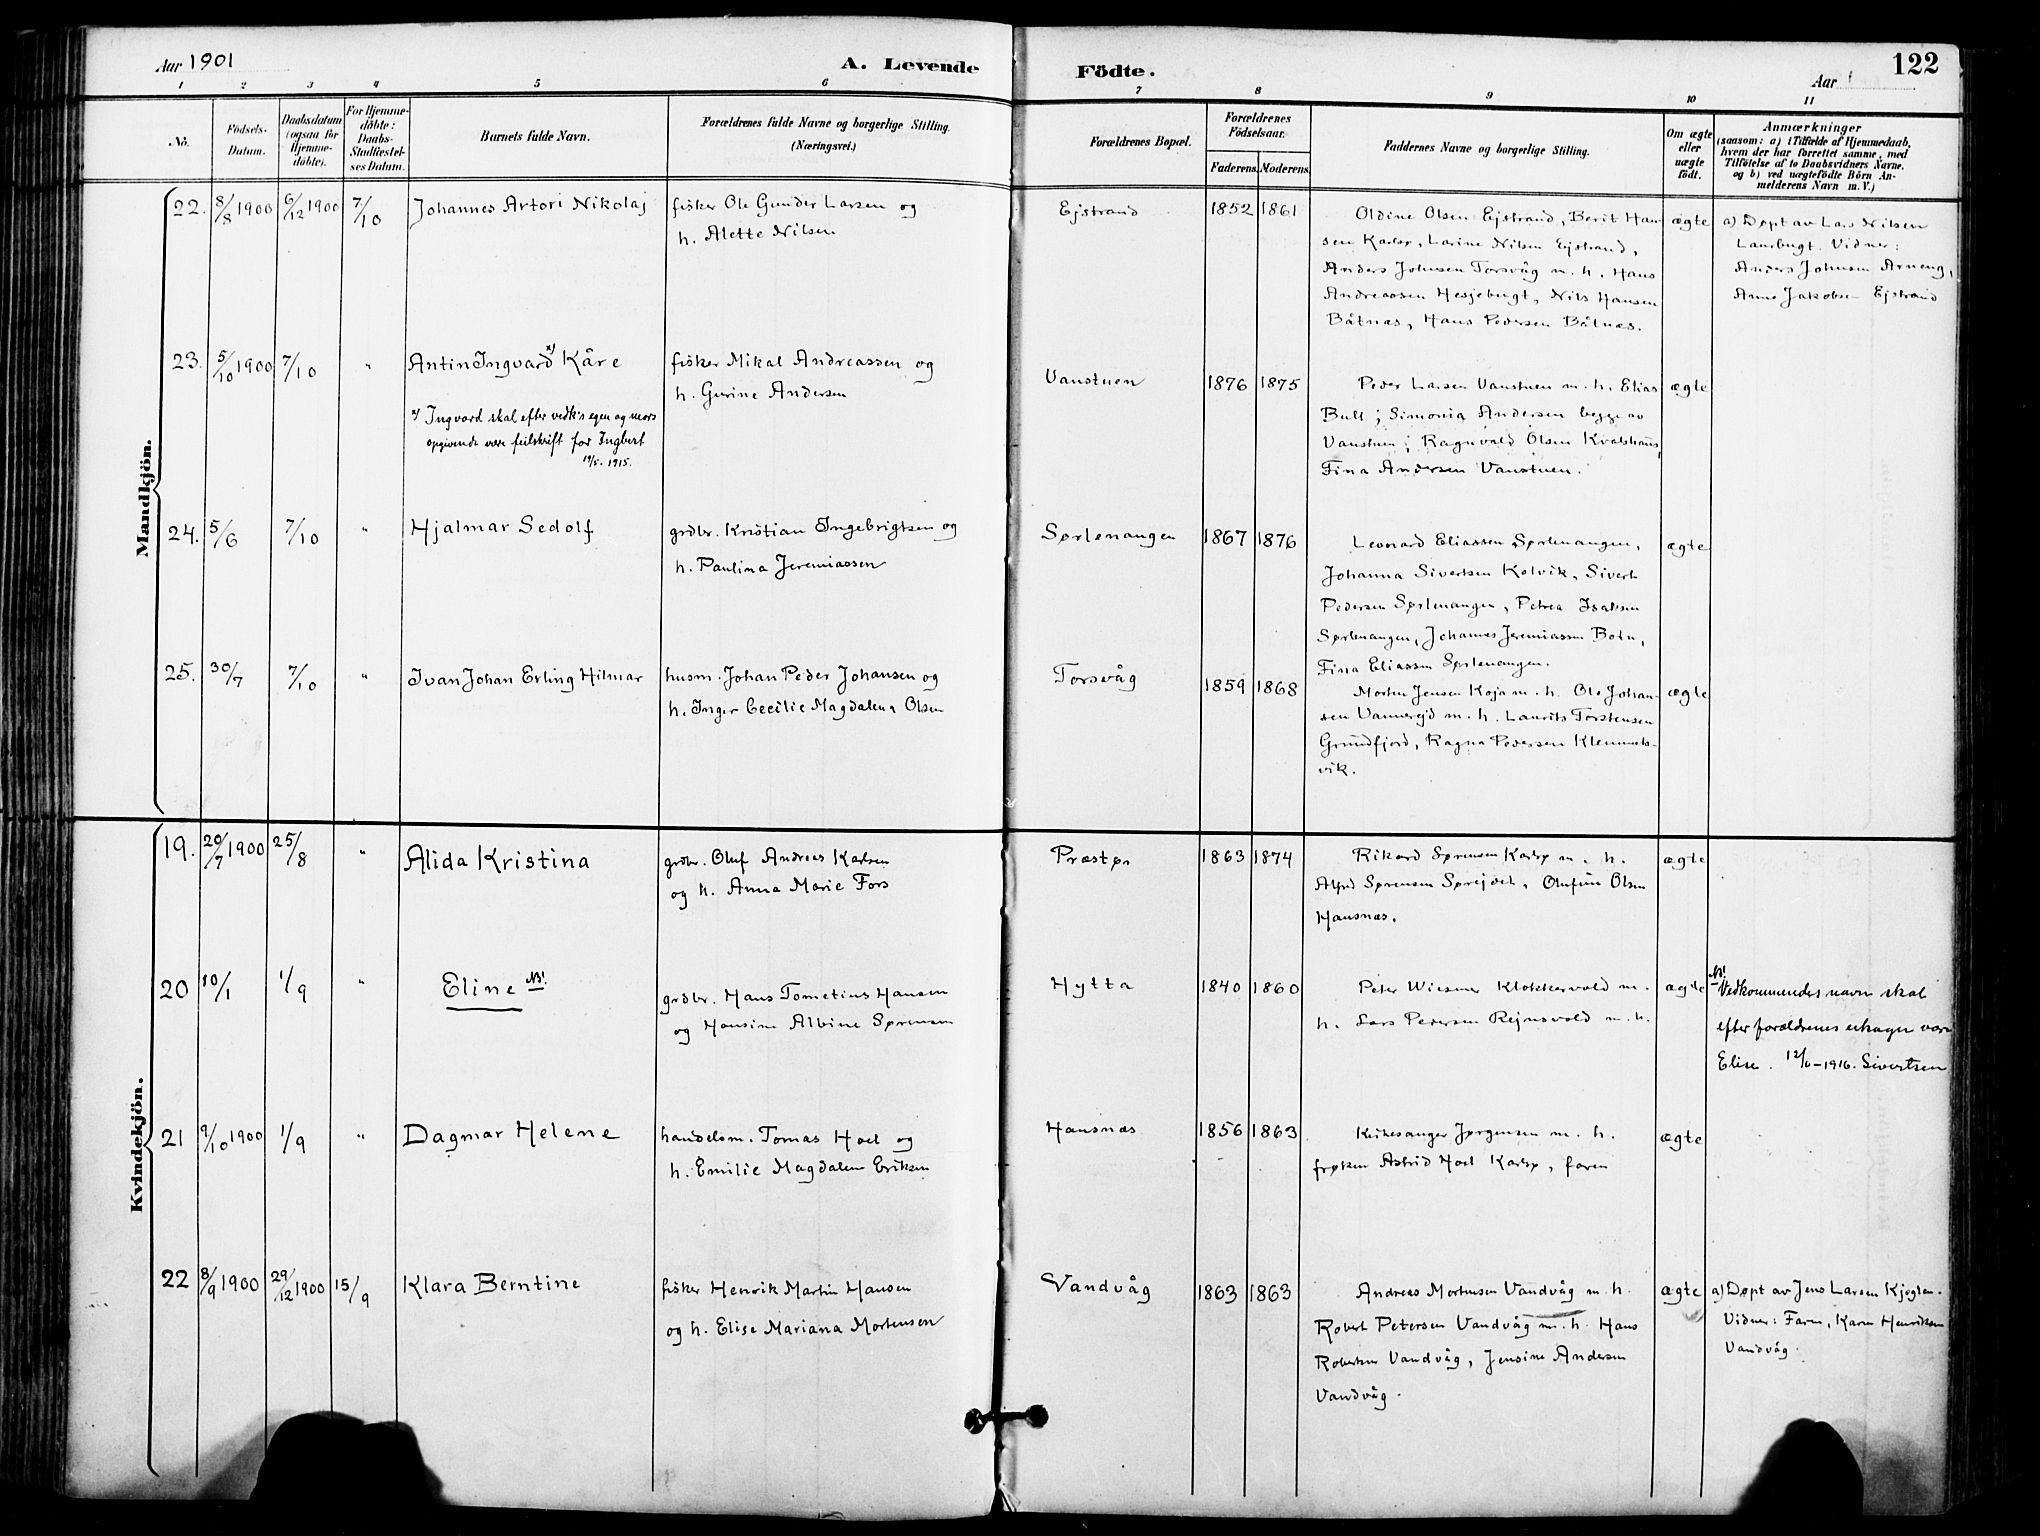 Aar 1901
A. Levende
Födte.
Aar
122
1 2 3 4 5 6 7 8 9 10 11
No.
Födsels-
Datum.
Daabsdatum
(ogsaa for
Hjemme-
döbte).
For Hjemme-
döbte:
Daabs-
Stadfæstel-
ses Datum.
Barnets fulde Navn.
Forældrenes fulde Navne og borgerlige Stilling.
(Næringsvei.)
Forældrenes Bopæl.
Forældrenes
Födselsaar.
Faderens. Moderens.
Faddernes Navne og borgerlige Stilling.
Om ægte
eller
uægte
födt.
Anmærkninger
(saasom: a) i Tilfælde af Hjemmedaab,
hvem der har forrettet samme, med
Tilföielse af to Daabsvidners Navne,
og b) ved uægtefödte Börn An-
melderens Navn m. V.)
Mandkjön.
22. 8/8 1900 6/12 1900 7/10 Johannes Artori Nikolaj
fisker Ole Gunder Larsen og
h. Alette Nilsen
Ejstrand 1852 1861
Oldine Olsen Ejstrand, Berit Han-
sen Karlsø, Larine Nilsen Ejstrand,
Anders Johnsen Torsvåg m. h. Hans
Andreassen Hesjebugt, Nils Hansen
Båtnæs, Hans Pedersen Båtnæs.
ægte
a) Døpt av Lars Nilsen
Lanesbugt. Vidner:
Anders Johnsen Arneng,
Anne Jakobsen Ejstrand
23. 5/10 1900 7/10 " Antin Ingvard x) Kåre
x) Ingvard skal efter vedk's egen og mors
opgivende være feilskrift for Ingbert
19/5. 1915.
fisker Mikal Andreassen og
h. Gurine Andersen
Vanstuen 1876 1875
Peder Larsen Vanstuen m. h. Elias
Bull; Simonia Andersen begge av
Vanstuen; Ragnvald Olsen Kvalshaus,
Fina Andersen Vanstuen.
ægte
24. 5/6 7/10 " Hjalmar Sedolf
grdbr. Kristian Ingebrigtsen og
h. Paulina Jeremiassen
Sørlenangen 1867 1876
Leonard Eliassen Sørlenangen,
Johanna Sivertsen Kolvik, Sivert
Pedersen Sørlenangen, Petrea Isaksen
Sørlenangen, Johannes Jeremiassen Botn,
Fina Eliassen Sørlenangen.
ægte
25. 30/7 7/10 " Ivan Johan Erling Hilmar
husm. Johan Peder Johansen og
h. Inger Cecilie Magdalena Olsen
Torsvåg 1859 1868
Morten Jensen Koja m. h. Ole Johan-
sen Vannerejd m. h. Laurits Torstensen
Grundfjord, Ragna Pedersen Klemmets-
vik.
ægte
Kvindekjön.
19. 20/7 1900 25/8 " Alida Kristina
grdbr. Oluf Andreas Karlsen
og h. Anna Marie Fors
Præstør 1863 1874
Rikard Sørensen Karlsø m. h.
Alfred Sørensen Sørejdet, Olufine Olsen
Hansnæs.
ægte
20 10/1 1/9 " Eline NB!
grdbr. Hans Tometius Hansen
og Hansine Albine Sørensen
Hytta 1840 1860
Peter Wiesner Klokkervold m.
h. Lars Pedersen Rejnsvold m. h.
ægte
NB! Vedkommendes navn skal
efter forældrenes utsagn være
Elise. 12/6-1916. Sivertsen
21 9/10 1900 1/9 " Dagmar Helene
handelsm. Tomas Hoel og
h. Emilie Magdalene Eriksen
Hansnæs 1856 1863
Kirkesanger Jørgensen m. h.
frøken Astrid Hoel Karlsø, faren
ægte
22 8/9 1900 29/12 1900 15/9 Klara Berntine
fisker Henrik Martin Hansen
og h. Elise Mariana Mortensen
Vandvåg 1863 1863
Andreas Mortensen Vandvåg m. h.
Robert Petersen Vandvåg m. h. Hans
Robertsen Vandvåg, Jensine Andersen
Vandvåg.
ægte
a) Døpt av Jens Larsen Kjoglen.
Vidner: Faren, Karen Henriksen
Vandvåg.